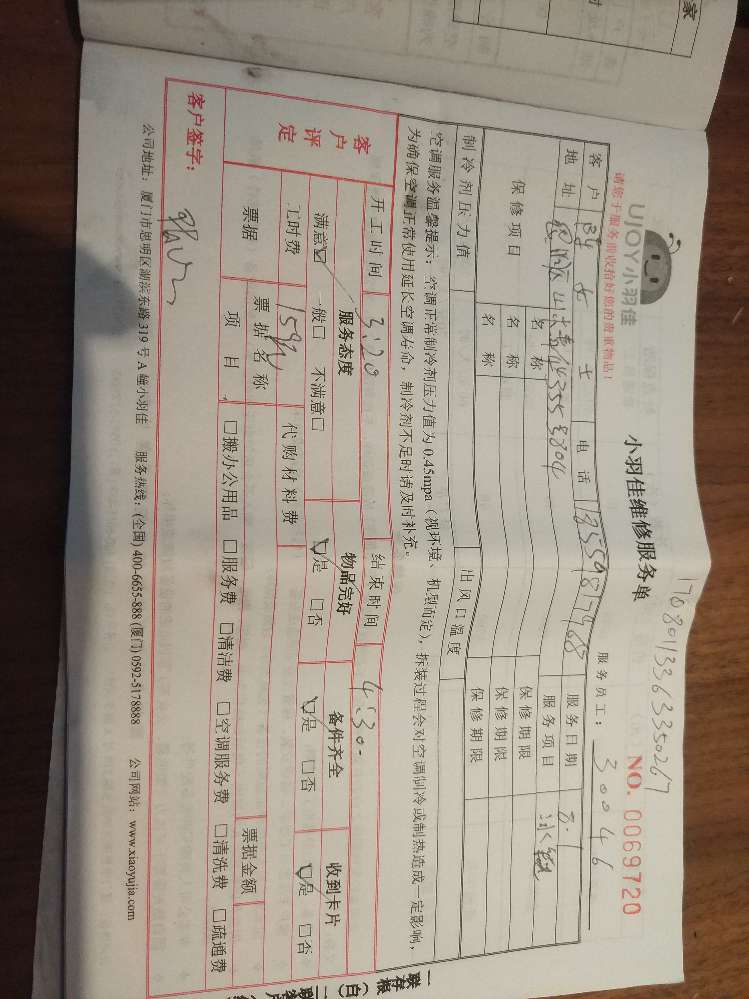 家
17080113363350267
UJOY小羽佳
小羽佳维修服务单
NO. 0069720
请您于服务前收拾好您的贵重物品！
服务员工： 30046
客户 女士 电话 服务日期 8.1
地址 服务项目 水
保修项目 名称 保修期限
名称 保修期限
名称 保修期限
制冷剂压力值 出风口温度
空调服务温馨提示：空调正常制冷剂压力值为 0.45mpa（视环境、机型而定），拆装过程会对空调制冷或制热造成一定影响，
为确保空调正常使用延长空调寿命，制冷剂不足时请及时补充。
开工时间 3:20 结束时间 4:30
客户评定 服务态度 物品完好 备件齐全 收到卡片
满意☑ 一般□ 不满意□ ☑是 □否 ☑是 □否 ☑是 □否
工时费 159元 代购材料费
票据 票据名称 票据金额
项目 □搬办公用品 □服务费 □清洁费 □空调服务费 □清洗费 □疏通费
客户签字：
公司地址：厦门市思明区湖滨东路 319 号 A 幢小羽佳 服务热线：(全国) 400-6655-888 (厦门) 0592-5178888 公司网站：www.xiaoyujia.com
一联存根（白）二联客户